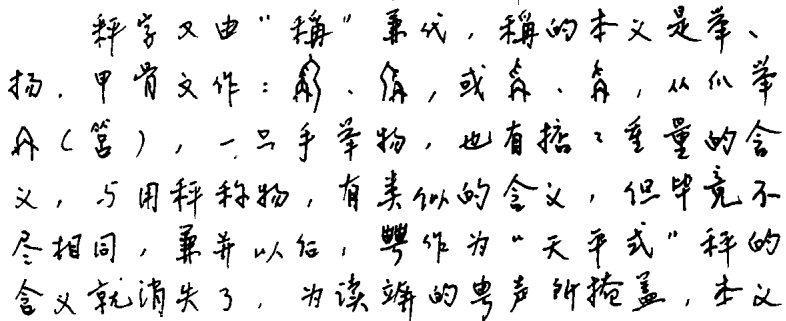 秤字又由“稱”兼代，稱的本义是举、
扬．甲骨文作：、，或、，从爪举
冉（筥），一只手举物，也有掂〻重量的含
义，与用秤称物，有类似的含义，但毕竟不
尽相同，兼并以后，作为“天平式”秤的
含义就消失了，为读骋的甹声所掩盖，本义